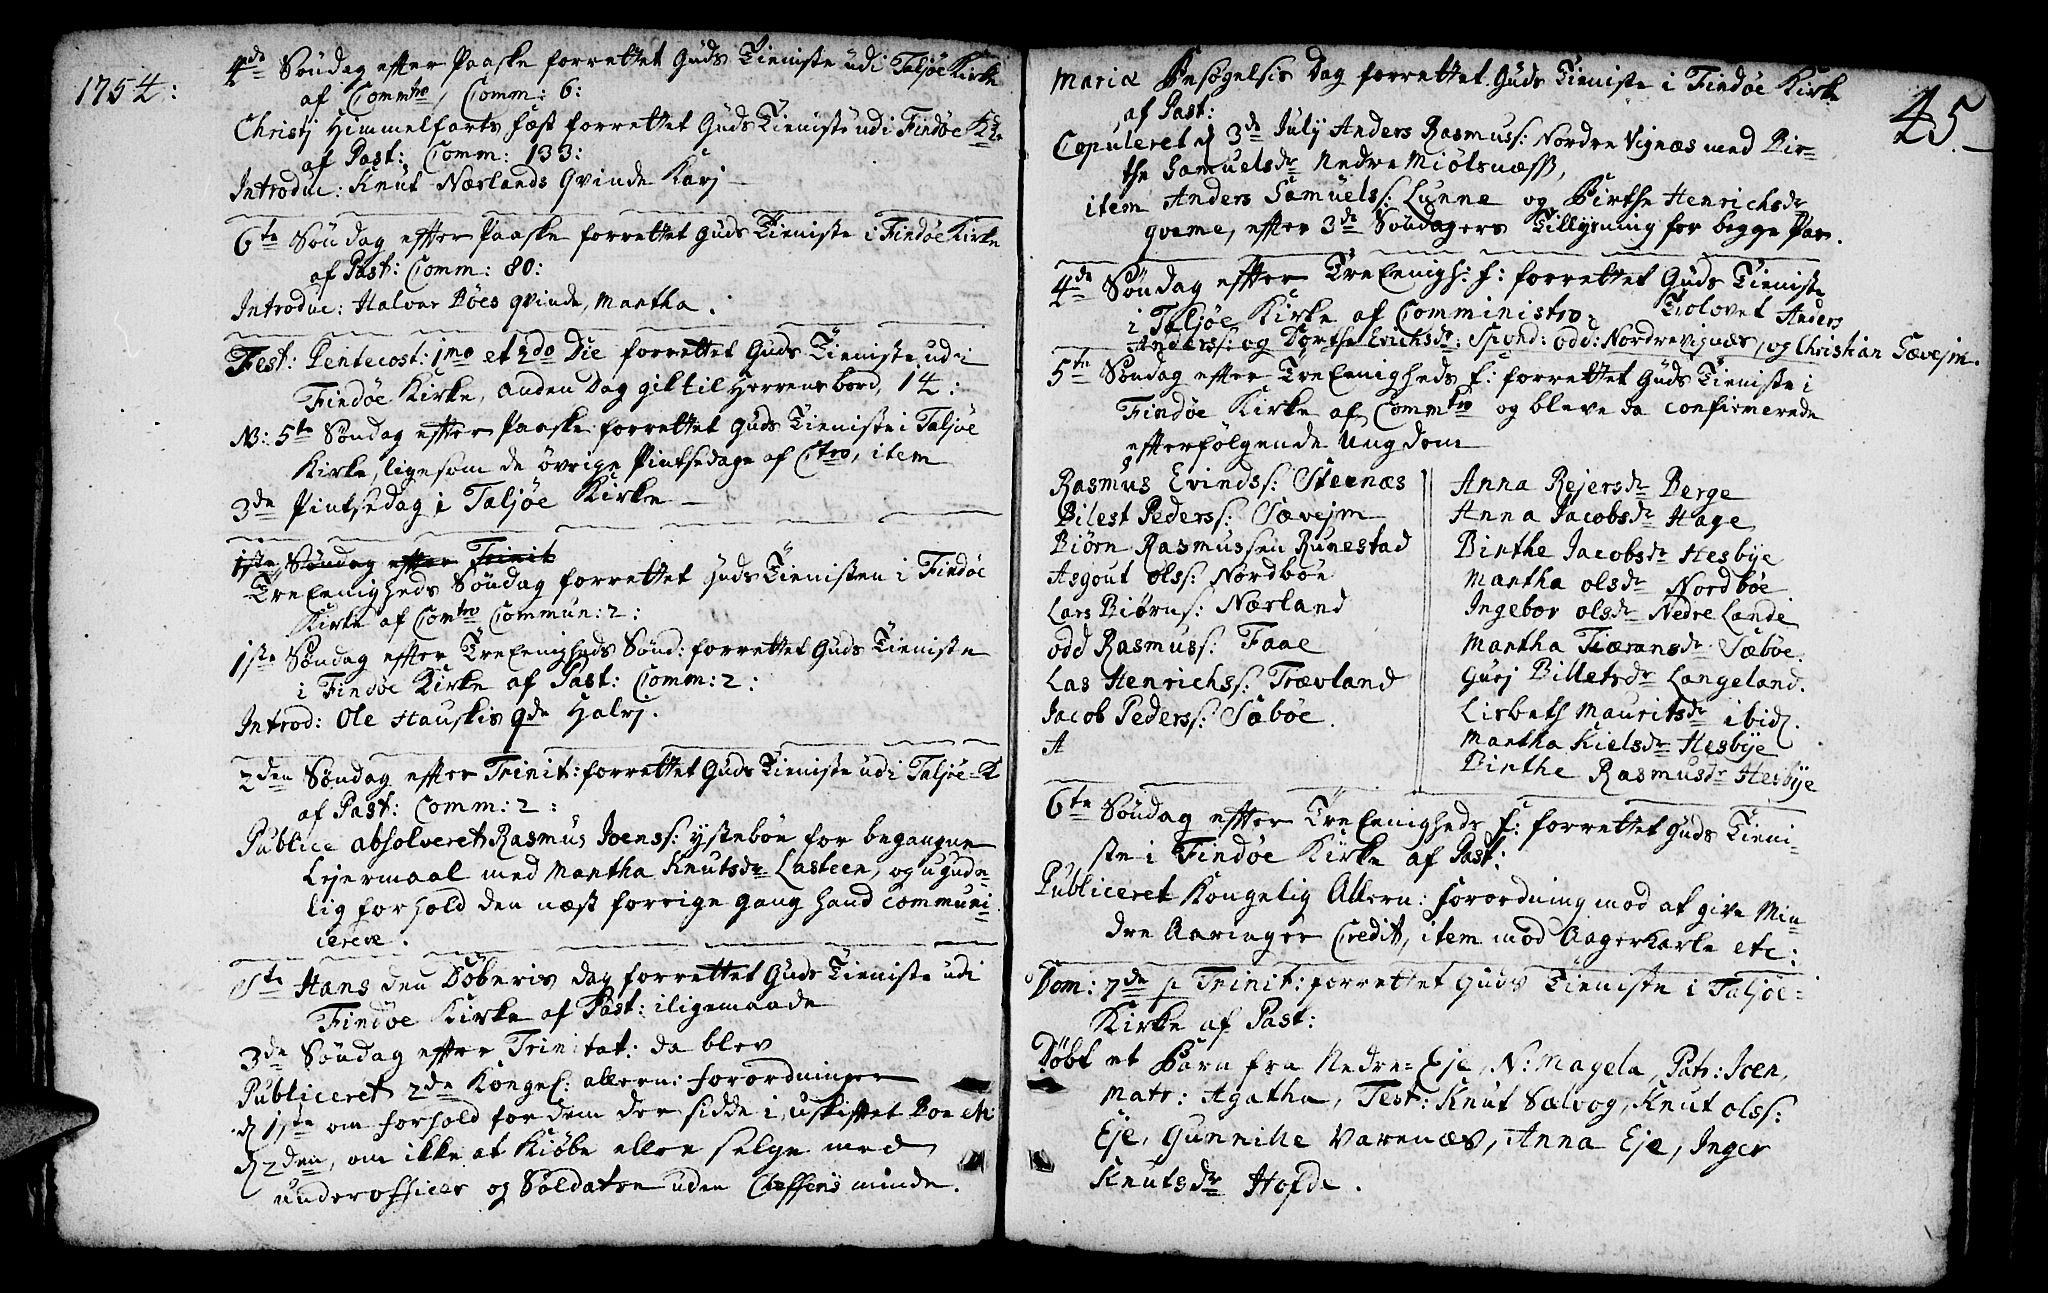 1754:
4de Søndag efter Paaske forrettet Guds Tieniste udi Taljøe Kirke
af Commtro, Comm: 6:
Christj Himmelfarts fæst forrettet Guds Tieniste udi Findøe K
af Past: Comm: 133:
Introduc: Knut Nærlands Qvinde Karj
6te Søndag effter Paaske forrettet Guds Tieniste i Findøe Kirke
af Past: Comm: 80:
Introduc: Halvar Bøes qvinde, Martha.
Fest: Pentecost: 1mo et 2do Die forrettet Guds Tieniste udi
Findøe Kirke, anden Dag gik til Herrens bord, 14:
NB: 5te Søndag effter Paaske forrettet Guds Tieniste i Taljøe
Kirke, ligesom de øvrige Pintsedage af Ctro, item
3de Pintsedag i Taljøe Kirke
1ste Søndag effter Trinit
Treeenigheds Søndag forrettet Guds Tienisten i Findøe
Kirke af Comtro Commun: 2:
1ste Søndag effter Treeenigheds Sønd: forrettet Guds Tieniste
i Findøe Kirke af Past: Comm: 2:
Introd: Ole Hauskis qde Halvj.
2den Søndag effter Trinit: forrettet Guds Tieniste udi Taljøe-K
af Past: Comm: 2:
Publice absolveret Rasmus Joenss: ystebøe for begangne
Lejermaal med Martha Knutsdr Lasteen, og ugude-
lig forhold den næst forrige gang hand communi-
cerede.
Ste Hans den Døberis dag forrettet Guds Tieniste udi
Findøe Kirke af Past: iligemaade
3de Søndag effter Trinitat: da blev
Publiceret 2de Kongel: allern: forordninger
d 1ste om forhold for dem der sidde i uskifftet Boe etc
d 2den, om ikke at Kiøbe eller selge med
underofficer og Soldaten uden Cheffens minde.
45.
Mariæ Besøgelsis Dag forrettet Guds Tieniste i Findøe Kirke
af Past:
Copuleret d 3de July Anders Rasmuss: Nordre Vignæs med Bir-
the Samuelsdr Nedre Miølsnæss,
item Anders Samuelss: Lunne og Birthe Henrichsdr
qvame, effter 3de Søndagers Tillysning for begge Par.
4de Søndag effter Treeenigh: f: forrettet Guds Tieniste
i Taljøe Kirke af Comministro. Trolovet Anders
Anderss: og Dorthe Erichsdr: Spond: odd: Nordrevignæs, og Christian Sævejm.
5te Søndag effter Treeenigheds f: forrettet Guds Tieniste i
Findøe Kirke af Commtro og bleve da confirmerede
effterfølgende Ungdom
Rasmus Evindss: Steenæs
Bilest Pederss: Sævejm
Biørn Rasmussen Runestad
Asgout olss: Nordbøe
Lars Biørns: Nærland
odd Rasmuss: Faae
Las Henrichss: Trævland
Jacob Pederss: Sæbøe.
A
Anna Rejersdr Berge
Anna Jacobsdr Hage
Birthe Jacobsdr Hesbye
Martha olsdr Nordbøe
Ingebor olsdr Nedre Lande
Martha Tiøransdr Sæbøe.
Gurj Billetsdr Langeland.
Lisbeth Mauritsdr ibid.
Martha Kielsdr Hesbye
Birthe Rasmusdr Hesbye
6te Søndag effter Treeenigheds f: forrettet Guds Tieni-
ste i Findøe Kirke af Past:
Publiceret Kongelig Allern: forordning mod at give Min-
dre Aaringer Credit, item mod Aagerkarle etc:
Dom: 7de p Trinit: forrettet Guds Tieniste i Taljøe-
Kirke af Past:
Døbt et Barn fra Nedre-Eje, N: Magela, Patr: Joen,
Matr: Agatha, Test: Knut Sælvog, Knut olss:
Eje, Gunnilde Varenæs, Anna Eje, Inger
Knutsdr Hofde.